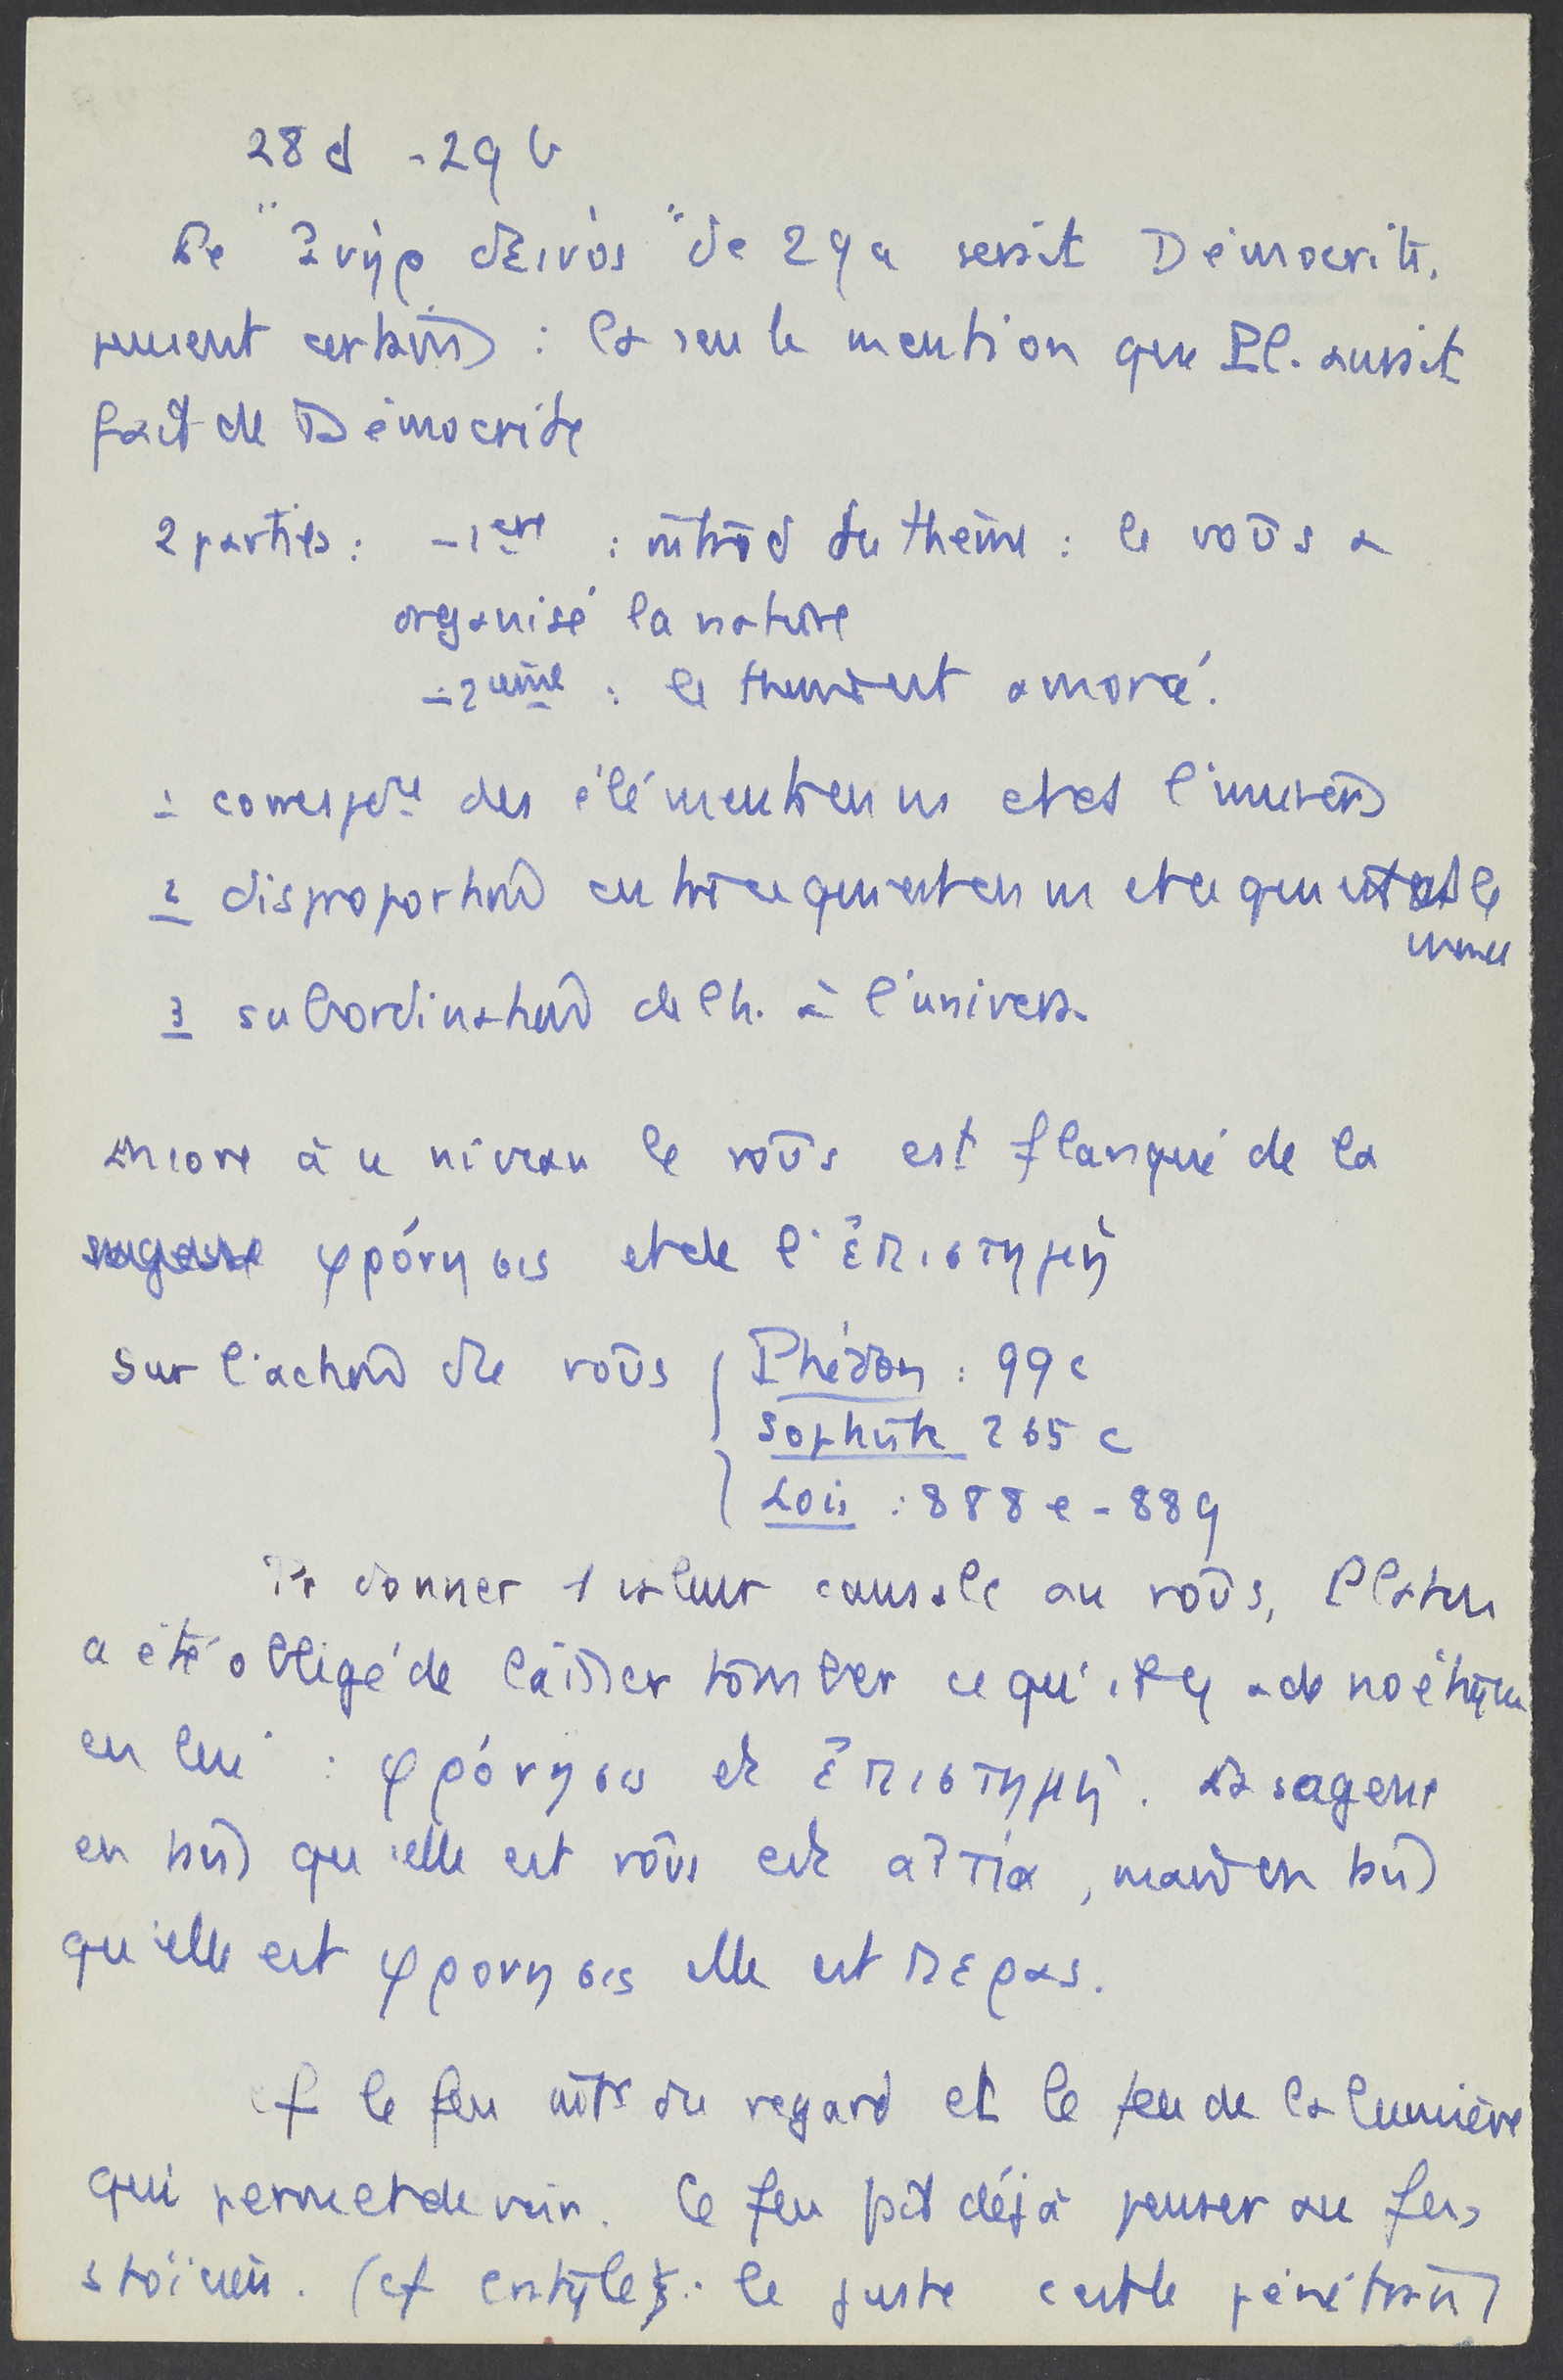 28 d - 29 b
Le "ἀνὴρ δεινὸς" de 29 a serait Démocrite,
pensent certains : la seule mention que Pl. aurait
fait de Démocrite
2 parties : - 1ère : introd du thème : le νοῦς a
organisé la nature
- 2ème : le thème est amorcé.
1 corresp des éléments en ns et ds l'univers
2 disproportion entre ce qui est en ns et ce qui est ds le
monde
3 subordination de l'h. à l'univers.
Encore à ce niveau le νοῦς est flanqué de la
sagesse φρόνησις et de l'ἐπιστημὴ
Sur l'action de νοῦς Phédon : 99 c
Sophiste 265 c
Lois : 888 e - 889
Pr donner 1 valeur causale au νοῦς, Platon
a été obligé de laisser tomber ce qu'il y a de noétique
en lui : φρόνησις et ἐπιστημὴ. La sagesse
en tant qu'elle est νοῦς est αἰτία, mais en tant
qu'elle est φρονησις elle est περας.
cf le feu intr du regard et le feu de la lumière
qui permet de voir. Ce feu fait déjà penser au feu
stoïcien. (cf Cratyle : le juste c'est le pénétrant